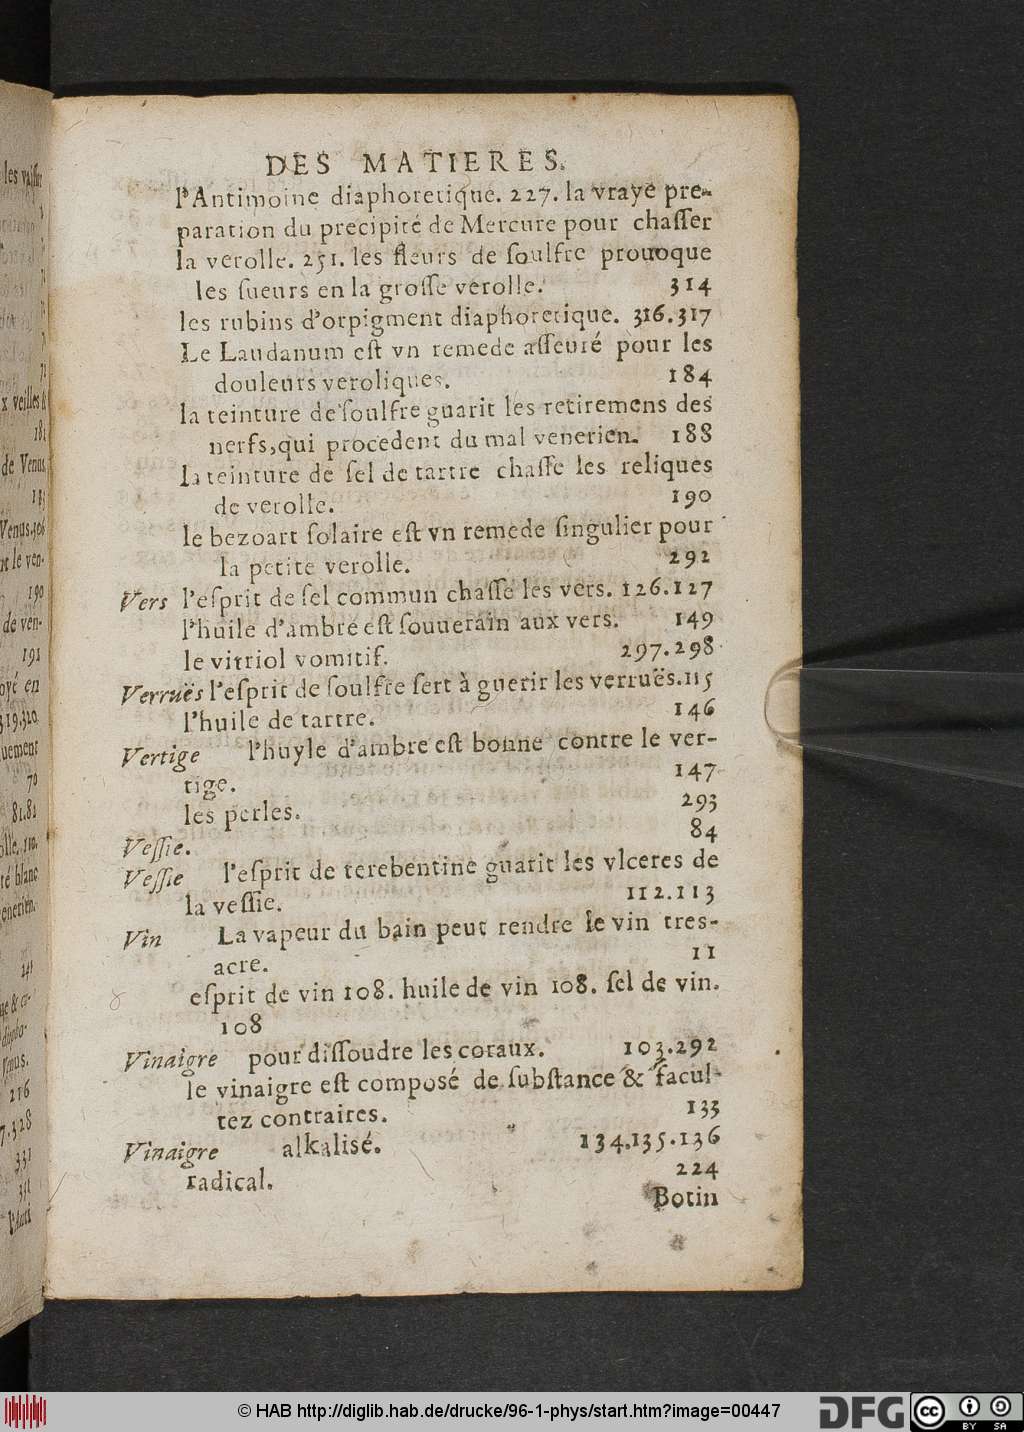 DES MATIERES.
l'Antimoine diaphoretique. 227. la vraye pre-
paration du precipité de Mercure pour chaſſer
la verolle. 251. les fleurs de ſoulfre prouoque
les ſueurs en la groſſe verolle. 314
les rubins d'orpigment diaphoretique. 316.317
Le Laudanum eſt vn remede aſſeuré pour les
douleurs veroliques. 184
la teinture de ſoulfre guarit les retiremens des
nerfs, qui procedent du mal venerien. 188
la teinture de ſel de tartre chaſſe les reliques
de verolle. 190
le bezoart ſolaire eſt vn remede ſingulier pour
la petite verolle. 292
Vers l'eſprit de ſel commun chaſſe les vers. 126.127
l'huile d'ambre eſt ſouuerain aux vers. 149
le vitriol vomitif. 297.298
Verruës l'eſprit de ſoulfre ſert à guerir les verruës. 115
l'huile de tartre. 146
Vertige l'huyle d'ambre eſt bonne contre le ver-
tige. 147
les perles. 293
Veſſie. 84
Veſſie l'eſprit de terebentine guarit les vlceres de
la veſſie. 112.113
Vin La vapeur du bain peut rendre le vin tres-
acre. 11
eſprit de vin 108. huile de vin 108. ſel de vin.
108
Vinaigre pour diſſoudre les coraux. 103.292
le vinaigre eſt compoſé de ſubſtance & facul-
tez contraires. 133
Vinaigre alkaliſé. 134.135.136
radical. 224
Botin
les vaiſſ
x veilles &
181
de Venus,
Venus.306
le ven-
190
de ven-
191
oyé en
319.320.
uement
70
81.82
olle. 110.
té blanc
enerien.
241
Venus.
216
7.328
331
331
l'Anti
© HAB http://diglib.hab.de/drucke/96-1-phys/start.htm?image=00447
DFG
cc
BY SA